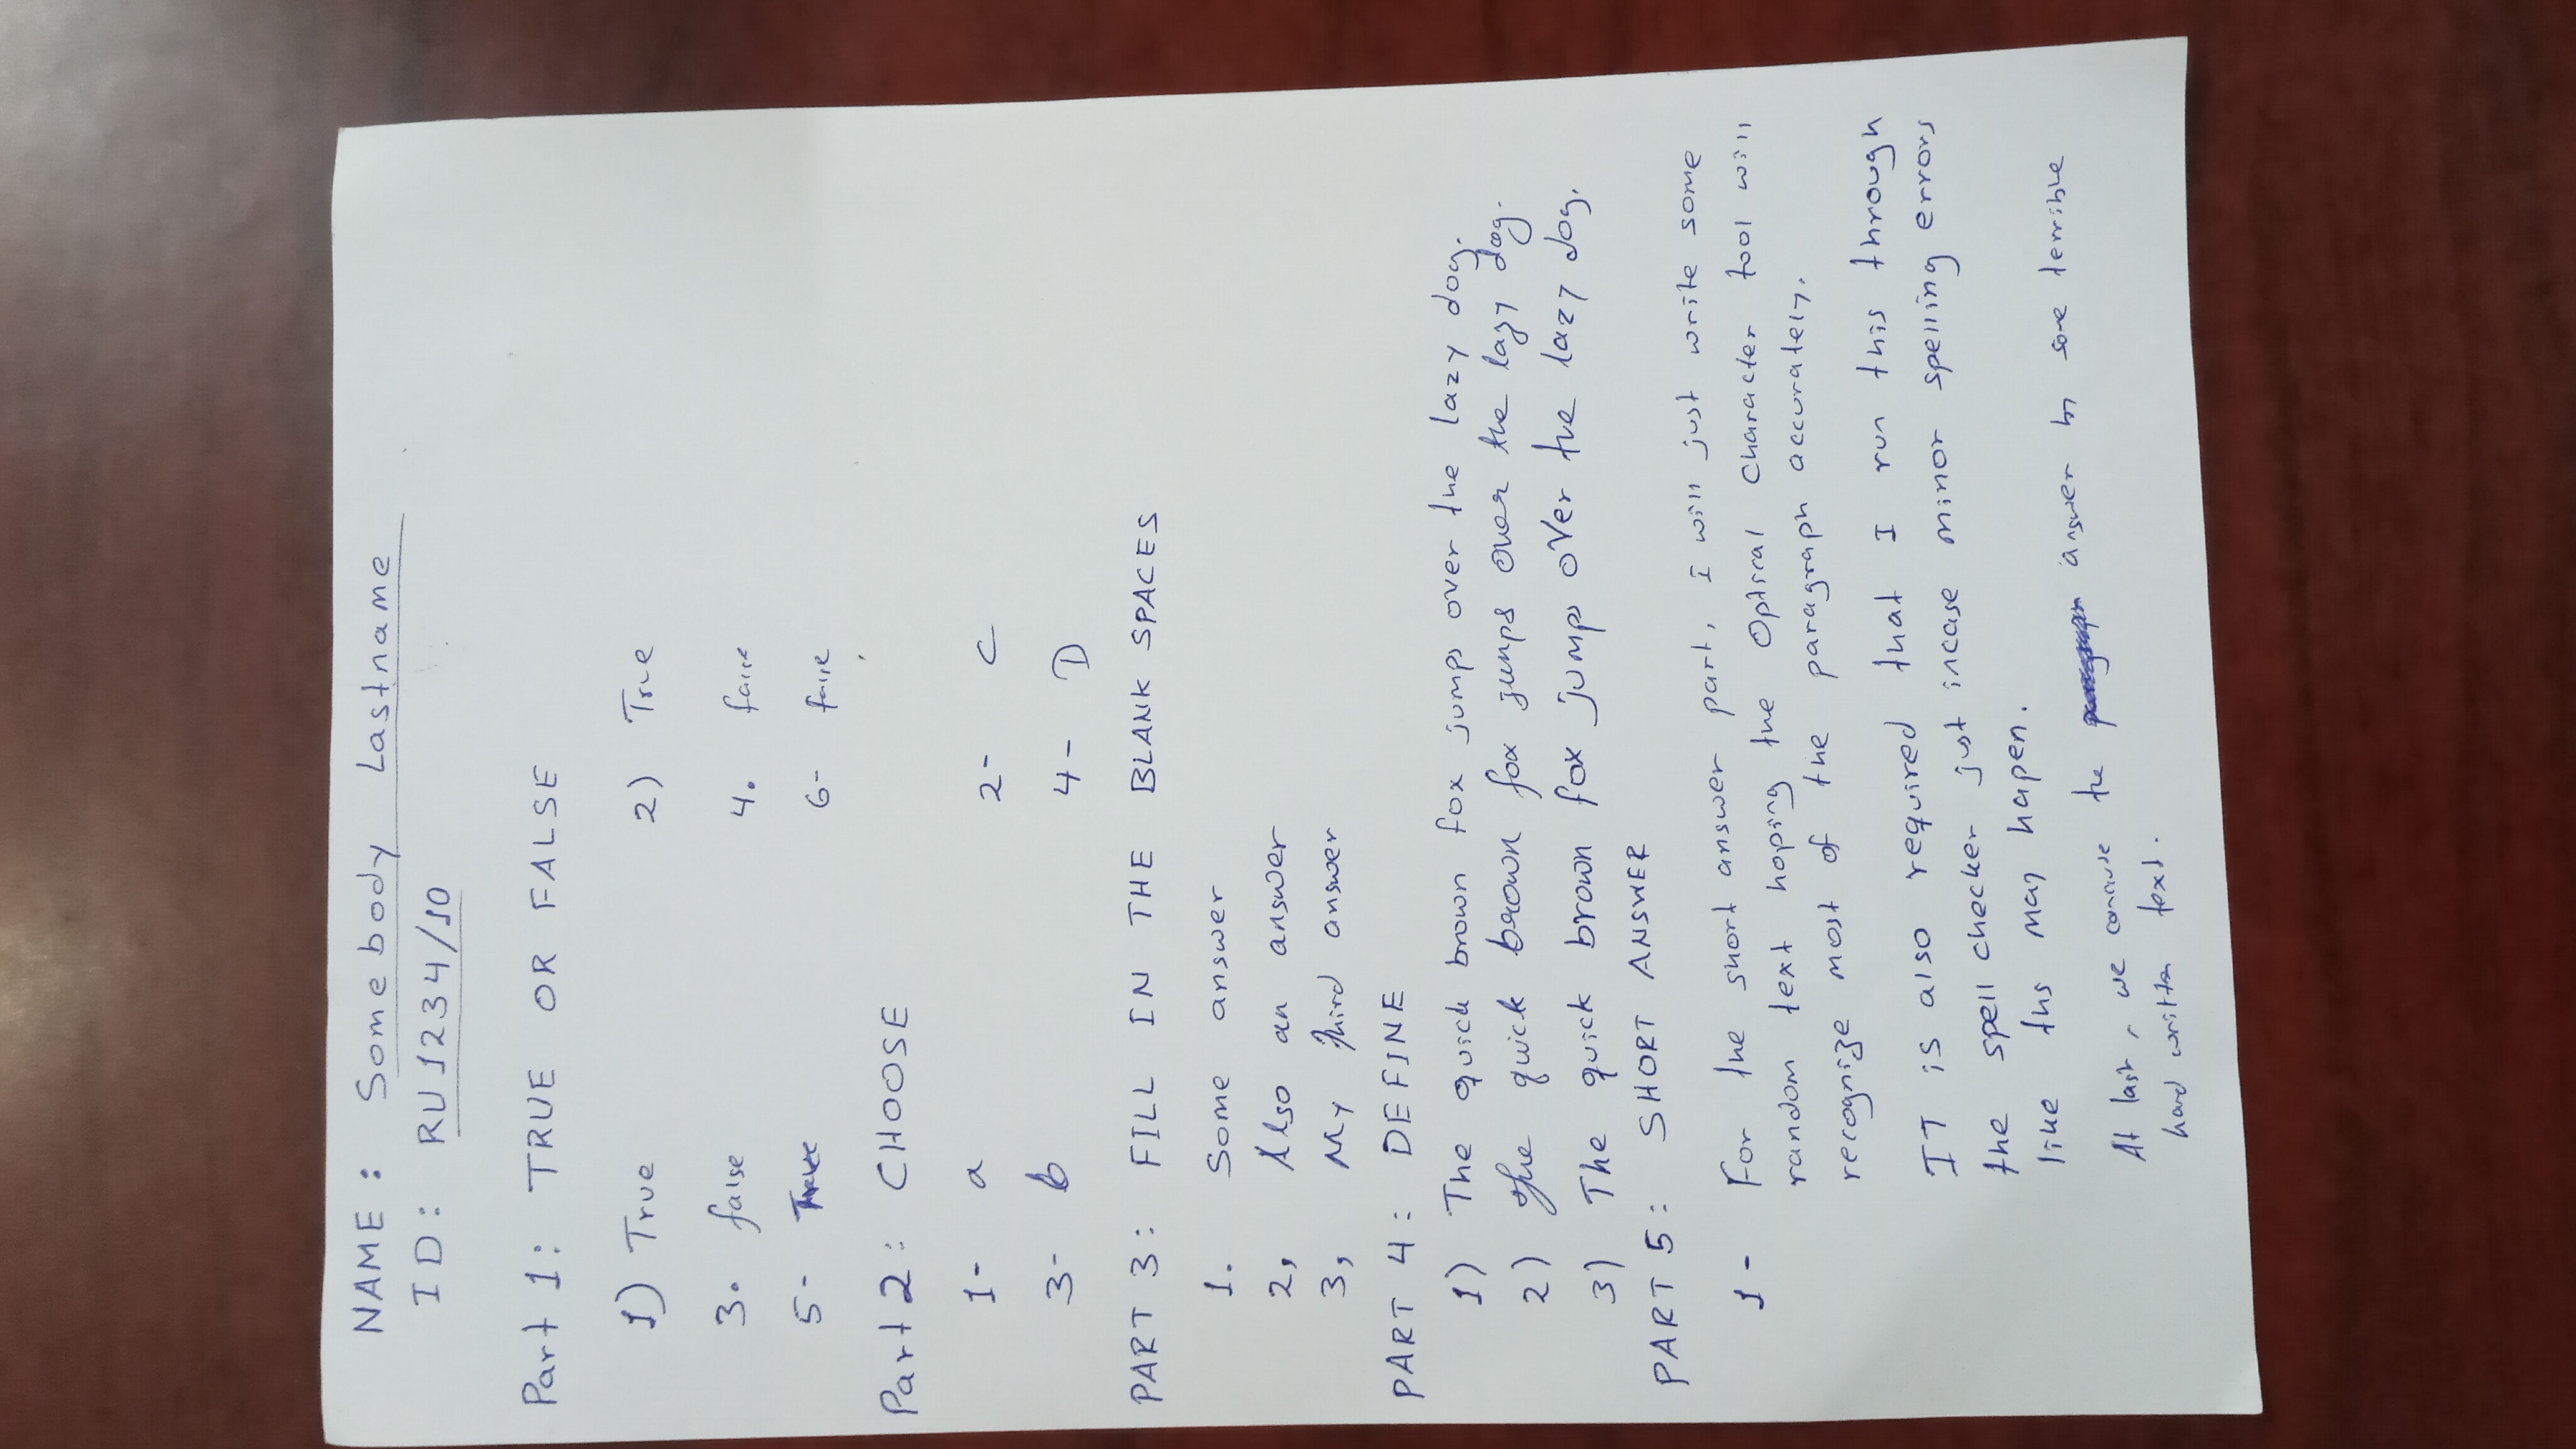 NAME : Somebody Lastname
ID : RU1234/10
Part 1: TRUE OR FALSE
1) True 2) True
3. false 4. false
5- True 6- false
Part 2: CHOOSE
1- a 2- C
3- b 4- D
PART 3: FILL IN THE BLANK SPACES
1. Some answer
2, Also an answer
3, My third answer
PART 4: DEFINE
1) The quick brown fox jumps over the lazy dog.
2) The quick brown fox jumps over the lazy dog.
3) The quick brown fox jumps oVer the lazy dog.
PART 5: SHORT ANSWER
1- For the short answer part, I will just write some
random text hoping the Optical Character tool will
recognize most of the paragraph accurately.
IT is also required that I run this through
the spell checker just incase minor spelling errors
like ths may hapen.
At last, we conclude the answer by some terrible
hand written text.